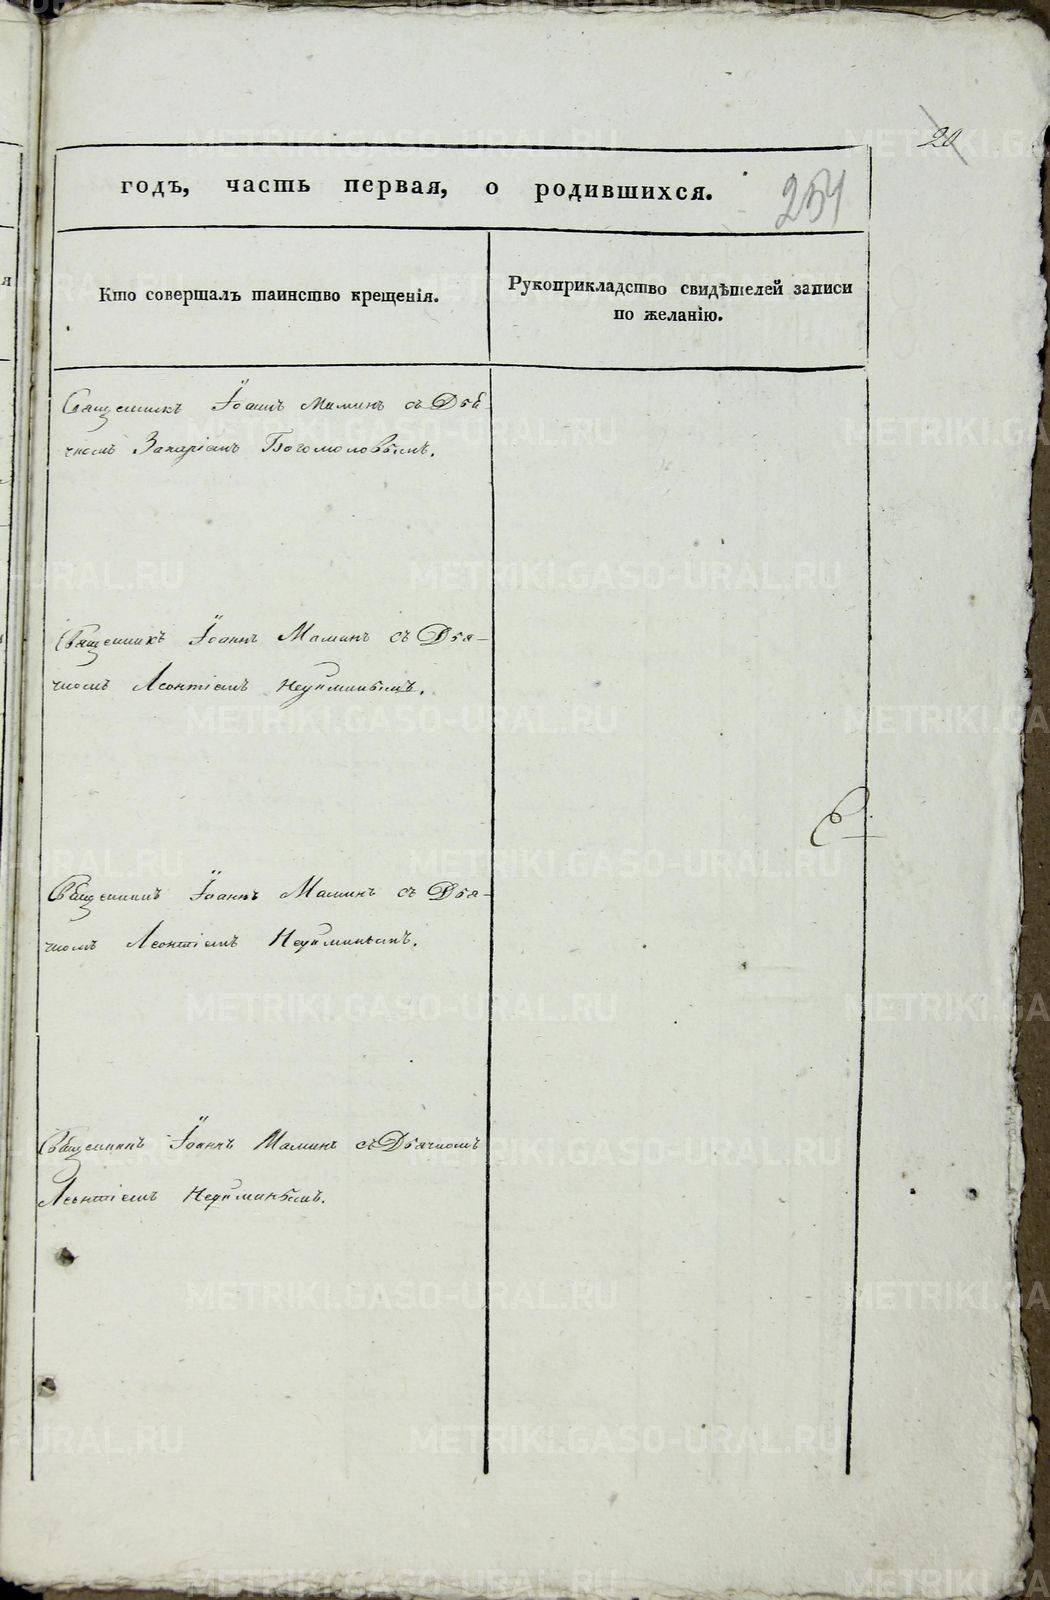 20
годъ, часть первая, о родившихся.
254
Кто совершалъ таинство крещенія.
Рукоприкладство свидѣтелей записи
по желанію.
Священникъ Іоаннъ Маминъ съ Дья-
чкомъ Захаріемъ Богомоловымъ.
Священникъ Іоаннъ Маминъ съ Дья-
чкомъ Леонтіемъ
Священникъ Іоаннъ Маминъ съ Дья-
чкомъ Леонтіемъ
Священникъ Іоаннъ Маминъ съ Дьячкомъ
Леонтіемъ
METRIKI.GASO-URAL.RU